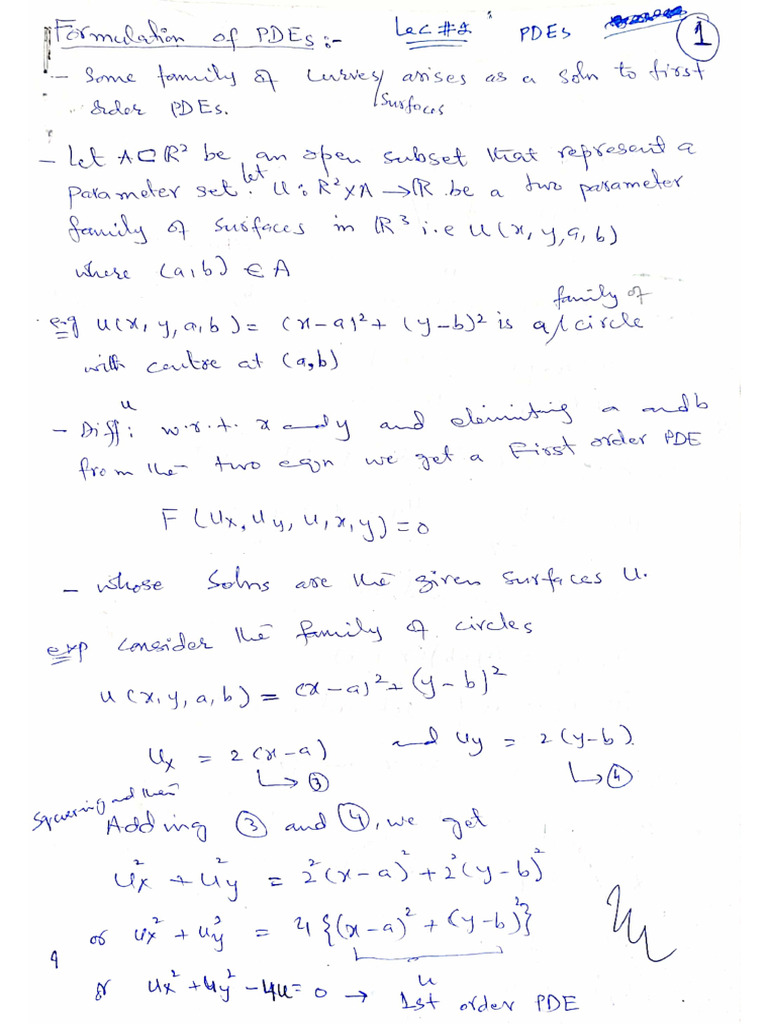 Formulation of PDEs:- Lec #2: PDEs 1
- Some family of curves/surfaces arises as a soln to first
order PDEs.
- Let A⊂R² be an open subset that represent a
parameter set. let U: R²×A→R be a two parameter
family of surfaces in R³ i.e U(x,y,a,b)
where (a,b) ∈ A
e.g u(x,y,a,b) = (x-a)² + (y-b)² is a/family of circle
with centre at (a,b)
- Diff: u w.r.t. x and y and eleminting a and b
from the two eqn we get a First order PDE
F(Ux, Uy, U, x, y) = 0
- whose Solns are the given surfaces U.
exp consider the family of circles
u(x,y,a,b) = (x-a)² + (y-b)²
Ux = 2(x-a) and Uy = 2(y-b).
↳ ③ ↳ ④
Squaring and then
Adding ③ and ④, we get
Ux² + Uy² = 2²(x-a)² + 2²(y-b)²
or Ux² + Uy² = 4{(x-a)² + (y-b)²}
u
or Ux² + Uy² - 4u = 0 → 1st order PDE